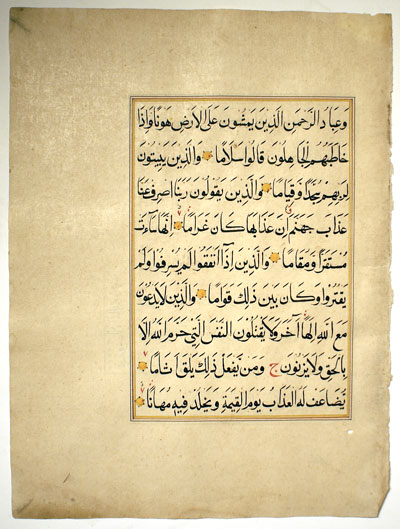 وَعِبَادُ الرَّحْمٰنِ الَّذِينَ يَمْشُونَ عَلَى الْاَرْضِ هَوْنًا وَاِذَا
خَاطَبَهُمُ الْجَاهِلُونَ قَالُوا سَلَامًا وَالَّذِينَ يَبِيتُونَ
لِرَبِّهِمْ سُجَّدًا وَقِيَامًا وَالَّذِينَ يَقُولُونَ رَبَّنَا اصْرِفْ عَنَّا
عَذَابَ جَهَنَّمَ اِنَّ عَذَابَهَا كَانَ غَرَامًا اِنَّهَا سَاءَتْ
مُسْتَقَرًّا وَمُقَامًا وَالَّذِينَ اِذَا اَنْفَقُوا لَمْ يُسْرِفُوا وَلَمْ
يَقْتُرُوا وَكَانَ بَيْنَ ذٰلِكَ قَوَامًا وَالَّذِينَ لَا يَدْعُونَ
مَعَ اللّٰهِ اِلٰهًا اٰخَرَ وَلَا يَقْتُلُونَ النَّفْسَ الَّتِي حَرَّمَ اللّٰهُ اِلَّا
بِالْحَقِّ وَلَا يَزْنُونَ ج وَمَنْ يَفْعَلْ ذٰلِكَ يَلْقَ اَثَامًا
يُضَاعَفْ لَهُ الْعَذَابُ يَوْمَ الْقِيٰمَةِ وَيَخْلُدْ فِيهِ مُهَانًا